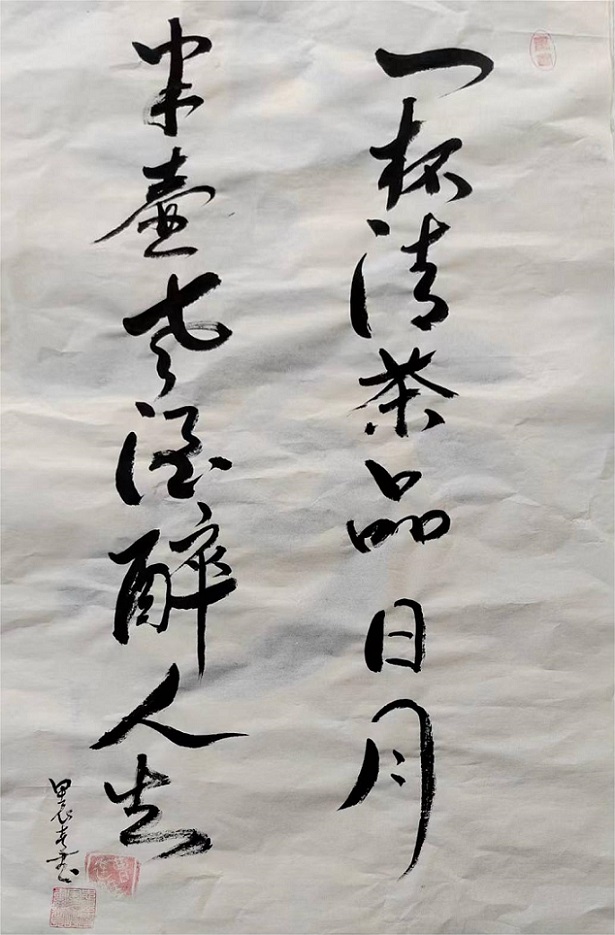 一杯清茶品日月
半壶老酒醉人生